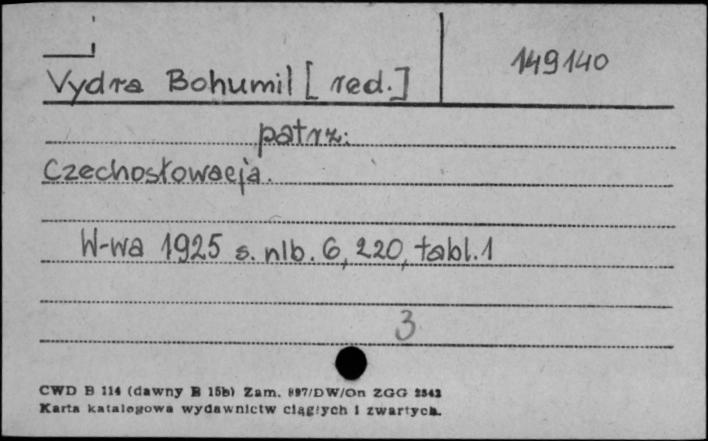 149140
Vydra Bohumil [red.]
patrz:
Czechosłowacja.
W-wa 1925 s. nlb. 6, 220, tabl. 1
3
CWD B 114 (dawny B 15b) Zam. 897/DW/On ZGG 2542
Karta katalogowa wydawnictw ciągłych i zwartych.